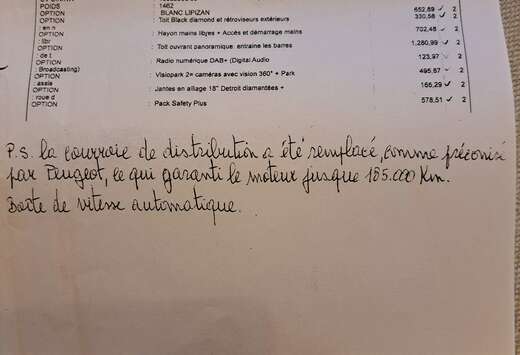 POIDS : 1462
OPTION : BLANC LIPIZAN 652,89 ✓ 2
OPTION : Toit Black diamond et rétroviseurs extérieurs 330,58 ✓ 2
: en n
OPTION : Hayon mains libres + Accès et démarrage mains 702,48 ✓ 2
: libr
OPTION : Toit ouvrant panoramique: entraine les barres 1.280,99 ✓ 2
: de t
OPTION : Radio numérique DAB+ (Digital Audio 123,97 2
: Broadcasting)
OPTION : Visiopark 2= caméras avec vision 360° + Park 495,87 ✓ 2
: assis
OPTION : Jantes en alliage 18" Detroit diamantées + 165,29 ✓ 2
: roue d
OPTION : Pack Safety Plus 578,51 ✓ 2
P.S. la courroie de distribution a été remplacé, comme préconisé
par Peugeot, ce qui garanti le moteur jusque 185.000 Km.
Boite de vitesse automatique.